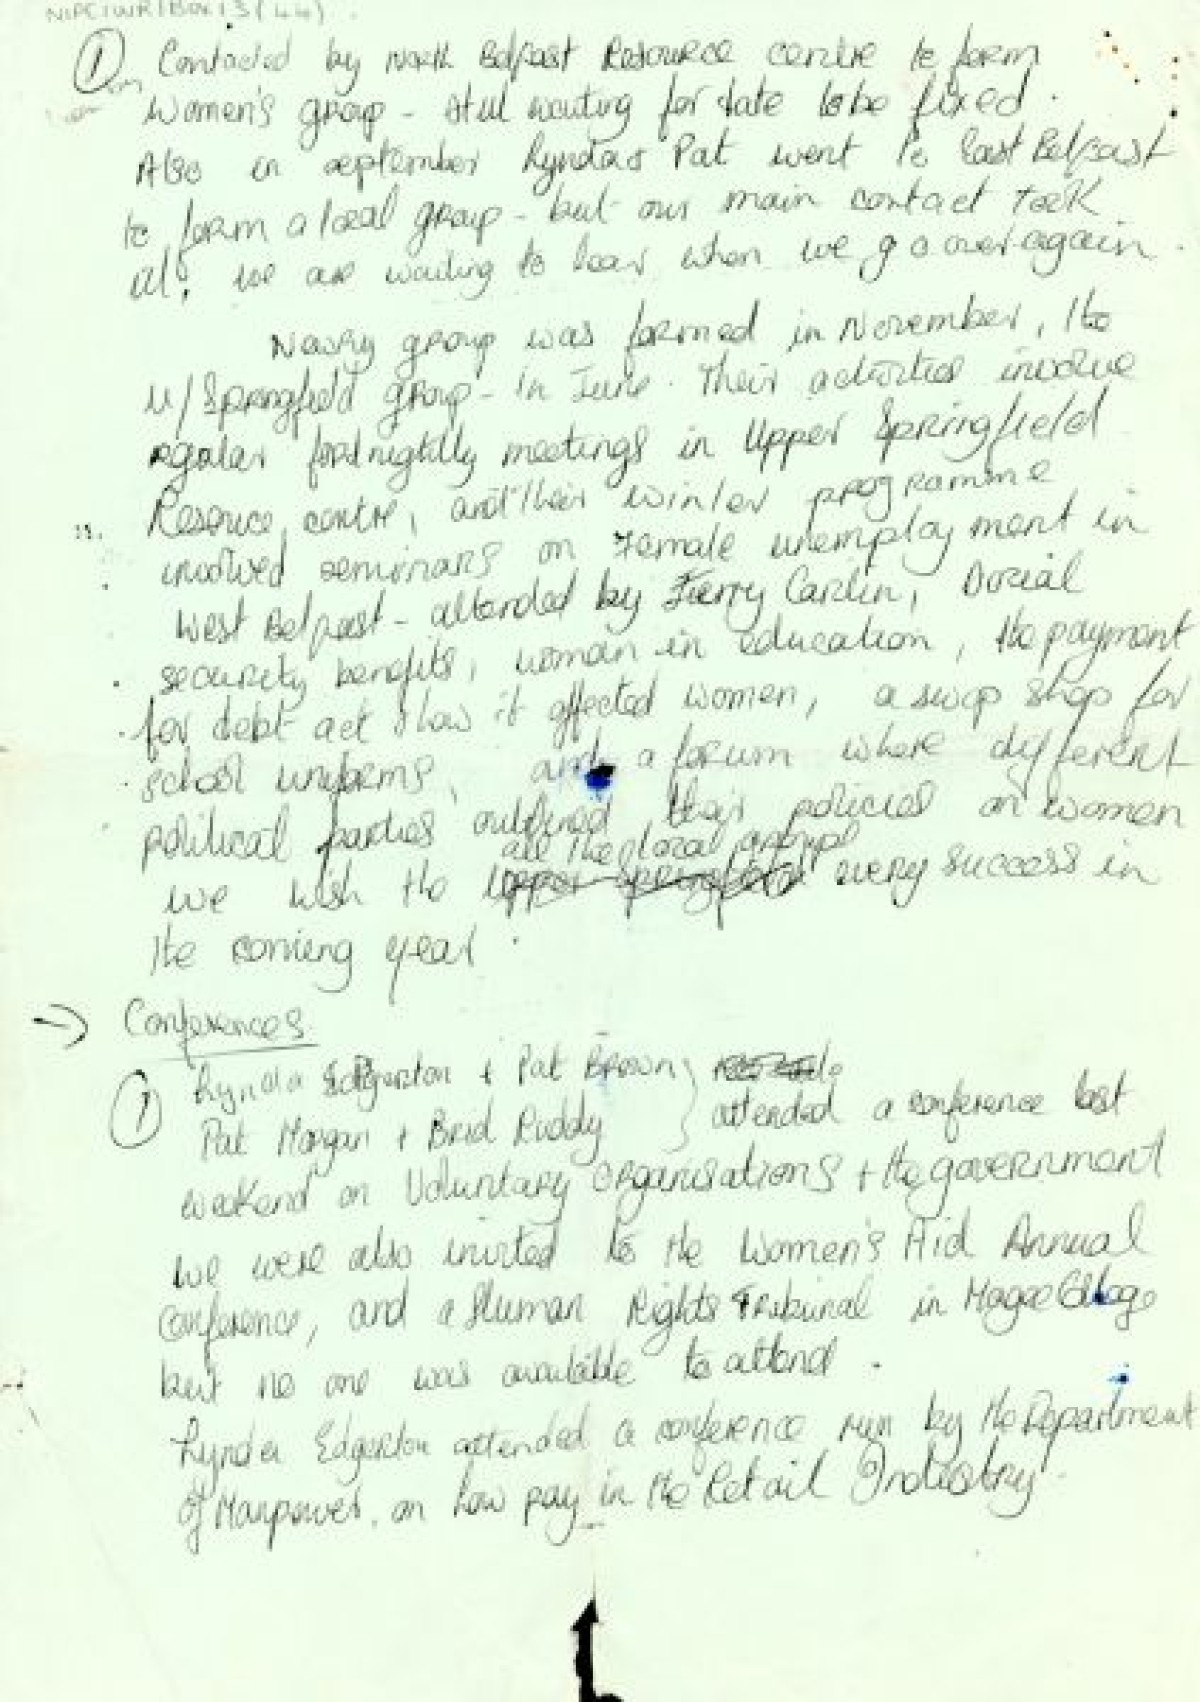 NIPC1WR1Box13(44)
① Contacted by North Belfast Resource centre to form
Women's group - still waiting for date to be fixed.
Also in september Lynda & Pat went to East Belfast
to form a local group - but our main contact took
ill; we are waiting to hear when we go over again.
Newry group was formed in November, the
U/Springfield group - in June. Their activities involve
regular fortnightly meetings in Upper Springfield
Resource centre, and their winter programme
involved seminars on Female unemployment in
West Belfast - attended by Terry Carlin, Social
security benefits, woman in education, the payment
for debt act & how it affected women, a swop shop for
school uniforms, and a forum where different
political parties outlined their policies on women
all the local groups
we wish the Upper Springfield every success in
the coming year.
→ Conferences
① Lynda Edgerton + Pat Brown
Pat Morgan + Brid Ruddy } attended a conference last
weekend on Voluntary Organisations + the government
we were also invited to the Women's Aid Annual
conference, and a Human Rights Tribunal in Magee College
but no one was available to attend.
Lynda Edgerton attended a conference run by the Department
of Manpower, on low pay in the Retail Industry.